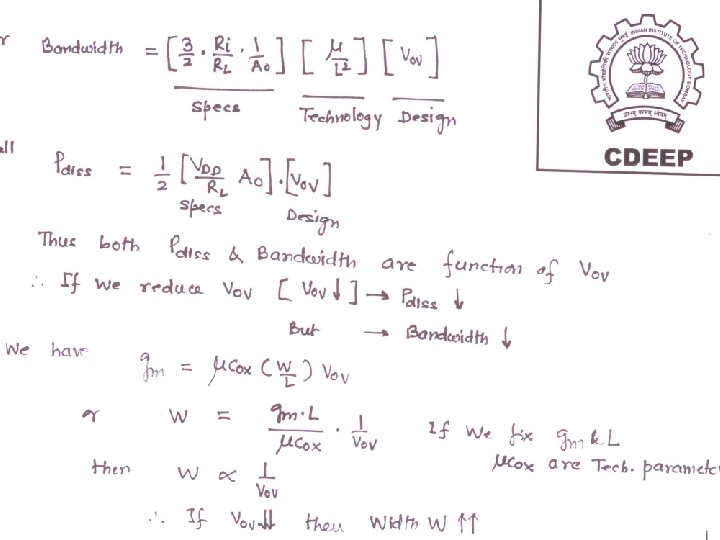 r Bandwidth = [3/2 · Ri/RL · 1/Ao] [μ/L²] [Vov]
Specs Technology Design
CDEEP
ll Pdiss = 1/2 [VDD/RL Ao] · [Vov]
Specs Design
Thus both Pdiss & Bandwidth are function of Vov
∴ If we reduce Vov [Vov↓] → Pdiss ↓
But → Bandwidth ↓
We have
gm = μCox (W/L) Vov
or W = gm·L/μCox · 1/Vov If we fix gm & L
μCox are Tech. paramete
then W ∝ 1/Vov
∴ If Vov↓↓ then Width W ↑↑